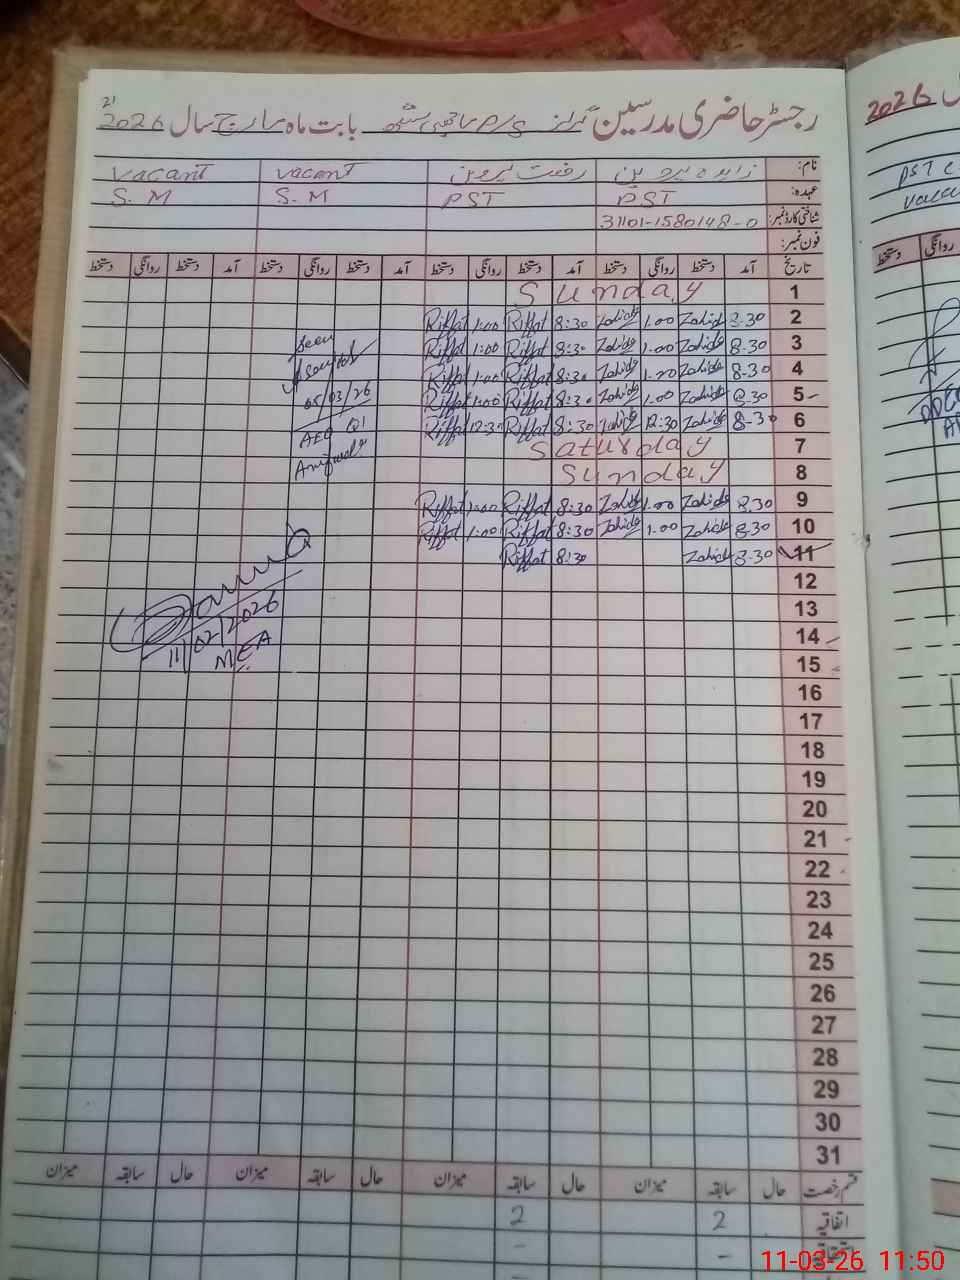 21
رجسٹر حاضری مدرسین گرلز P/S بابت ماہ مارچ سال 2026
نام: زاہدہ پروین رفعت پروین vacant vacant
عہدہ: PST PST S.M S.M
شناختی کارڈ نمبر: 31101-1580148-0
فون نمبر:
تاریخ آمد دستخط روانگی دستخط آمد دستخط روانگی دستخط آمد دستخط روانگی دستخط آمد دستخط روانگی دستخط
1 Sunday
2 8.30 Zahida 1.00 Zahida 8:30 Riffat 1:00 Riffat
3 8-30 Zahida 1.00 Zahida 8:30 Riffat 1:00 Riffat
4 8-30 Zahida 1.00 Zahida 8:30 Riffat 1:00 Riffat
5 8.30 Zahida 1.00 Zahida 8:30 Riffat 1:00 Riffat
6 8-30 Zahida 12:30 Zahida 8:30 Riffat 12:30 Riffat
7 Saturday
8 Sunday
9 8.30 Zahida 1.00 Zahida 8:30 Riffat 1:00 Riffat
10 8-30 Zahida 1.00 Zahida 8:30 Riffat 1:00 Riffat
11 8-30 Zahida 8:30 Riffat
Seen
05/03/26
AEO
11/02/2026
MEA
12
13
14
15
16
17
18
19
20
21
22
23
24
25
26
27
28
29
30
31
قسم رخصت حال سابقہ میزان حال سابقہ میزان حال سابقہ میزان حال سابقہ میزان
اتفاقیہ 2 2
استحقاقیہ - -
2026
PST
روانگی دستخط
11-03-26 11:50